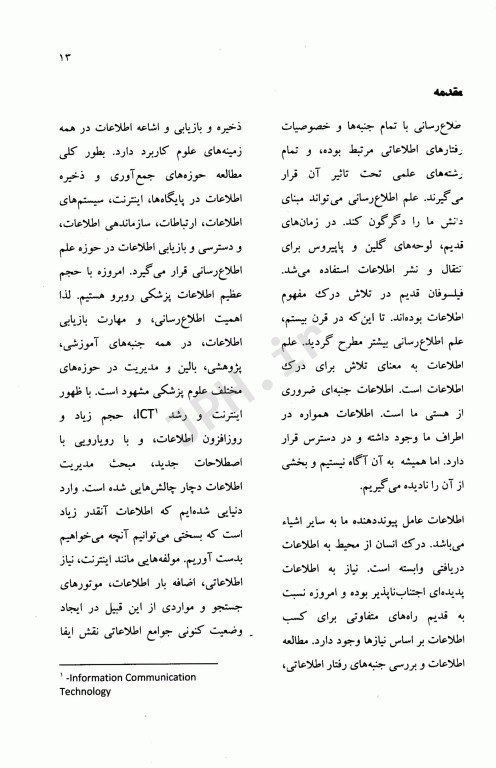 ۱۳
مقدمه
طلاع‌رسانی با تمام جنبه‌ها و خصوصیات
رفتارهای اطلاعاتی مرتبط بوده، و تمام
رشته‌های علمی تحت تاثیر آن قرار
می‌گیرند. علم اطلاع‌رسانی می‌تواند مبنای
دانش ما را دگرگون کند. در زمان‌های
قدیم، لوحه‌های گلین و پاپیروس برای
نتقال و نشر اطلاعات استفاده می‌شد.
فیلسوفان قدیم در تلاش درک مفهوم
اطلاعات بوده‌اند. تا این‌که در قرن بیستم،
علم اطلاع‌رسانی بیشتر مطرح گردید. علم
اطلاعات به معنای تلاش برای درک
اطلاعات است. اطلاعات جنبه‌ای ضروری
از هستی ما است. اطلاعات همواره در
اطراف ما وجود داشته و در دسترس قرار
دارد. اما همیشه به آن آگاه نیستیم و بخشی
از آن را نادیده می‌گیریم.
اطلاعات عامل پیونددهنده ما به سایر اشیاء
می‌باشد. درک انسان از محیط به اطلاعات
دریافتی وابسته است. نیاز به اطلاعات
پدیده‌ای اجتناب‌ناپذیر بوده و امروزه نسبت
به قدیم راه‌های متفاوتی برای کسب
اطلاعات بر اساس نیازها وجود دارد. مطالعه
اطلاعات و بررسی جنبه‌های رفتار اطلاعاتی،
ذخیره و بازیابی و اشاعه اطلاعات در همه
زمینه‌های علوم کاربرد دارد. بطور کلی
مطالعه حوزه‌های جمع‌آوری و ذخیره
اطلاعات در پایگاه‌ها، اینترنت، سیستم‌های
اطلاعات، ارتباطات، سازماندهی اطلاعات،
و دسترسی و بازیابی اطلاعات در حوزه علم
اطلاع‌رسانی قرار می‌گیرد. امروزه با حجم
عظیم اطلاعات پزشکی روبرو هستیم. لذا
اهمیت اطلاع‌رسانی، و مهارت بازیابی
اطلاعات، در همه جنبه‌های آموزشی،
پژوهشی، بالین و مدیریت در حوزه‌های
مختلف علوم پزشکی مشهود است. با ظهور
اینترنت و رشد ICT۱، حجم زیاد و
روزافزون اطلاعات، و با رویارویی با
اصطلاحات جدید، مبحث مدیریت
اطلاعات دچار چالش‌هایی شده است. وارد
دنیایی شده‌ایم که اطلاعات آنقدر زیاد
است که بسختی می‌توانیم آنچه می‌خواهیم
بدست آوریم. مولفه‌هایی مانند اینترنت، نیاز
اطلاعاتی، اضافه بار اطلاعات، موتورهای
جستجو و مواردی از این قبیل در ایجاد
وضعیت کنونی جوامع اطلاعاتی نقش ایفا
۱ -Information Communication
Technology
JPH.ir